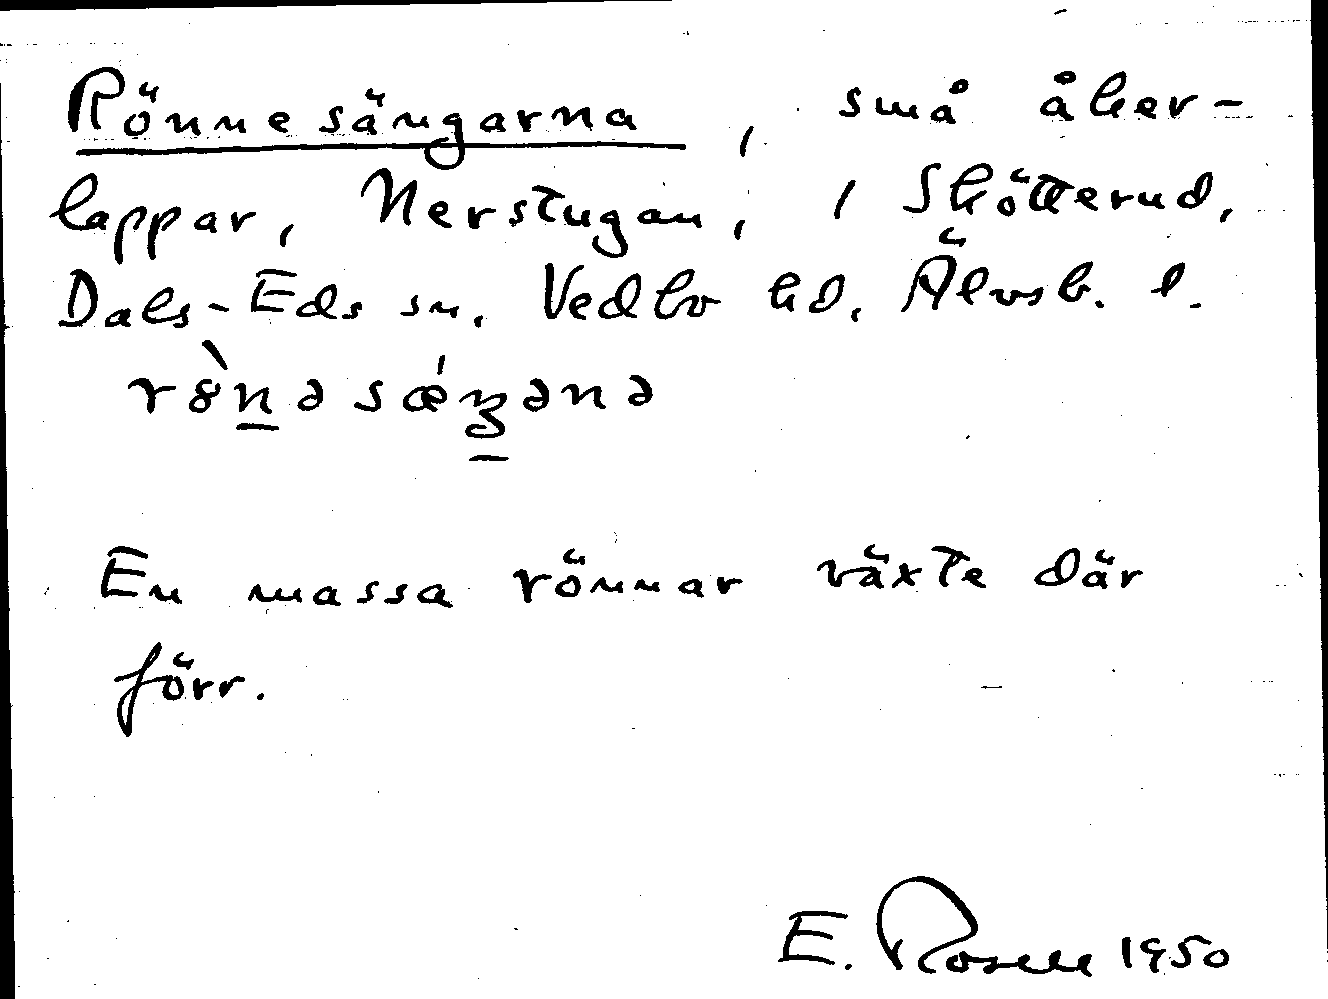 Rönnesängarna, små åker-
lappar, Nerstugan, i Skötterud,
Dals-Eds sn. Vedbo hd. Älvsb. l.
rö̀nəsǽŋənə
En massa rönnar växte där
förr.
E. Rosell 1950